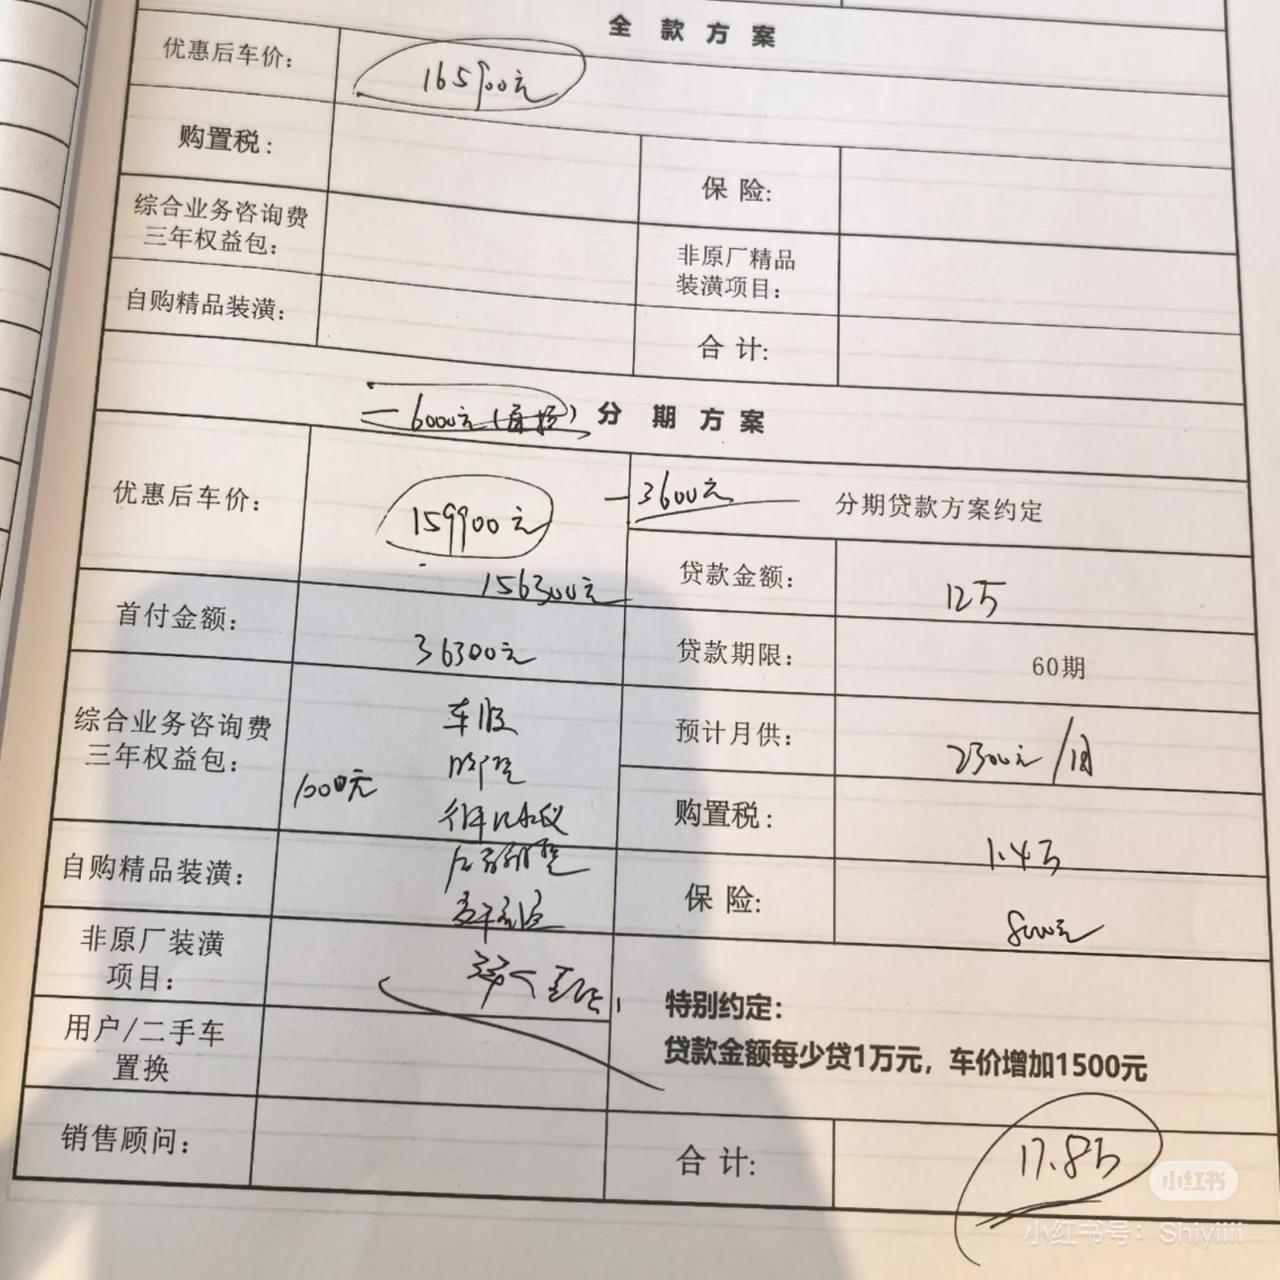 全款方案
优惠后车价：
165900元
购置税：
保险：
综合业务咨询费
三年权益包：
非原厂精品
装潢项目：
自购精品装潢：
合计：
-6000元
分期方案
优惠后车价：
159900元
156300元
-3600元
分期贷款方案约定
贷款金额：
12万
首付金额：
36300元
贷款期限：
60期
综合业务咨询费
三年权益包：
1000元
预计月供：
2300元/月
购置税：
1.4万
自购精品装潢：
保险：
8000元
非原厂装潢
项目：
特别约定：
贷款金额每少贷1万元，车价增加1500元
用户/二手车
置换
销售顾问：
合计：
17.8万
小红书
小红书号：Shyiiii